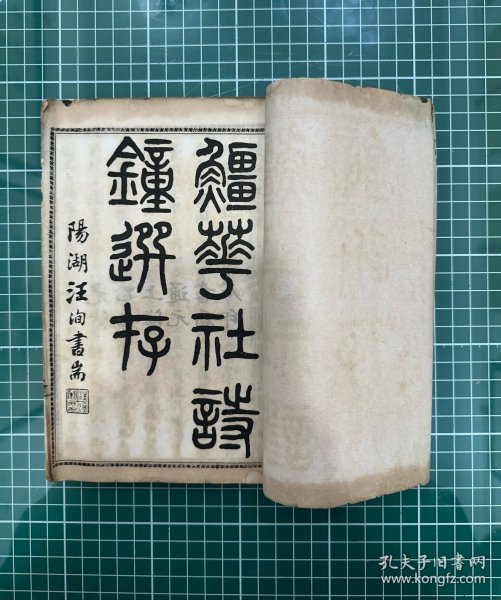 䲔華社詩
鐘選存
陽湖汪洵書耑
孔夫子旧书网
www.kongfz.com